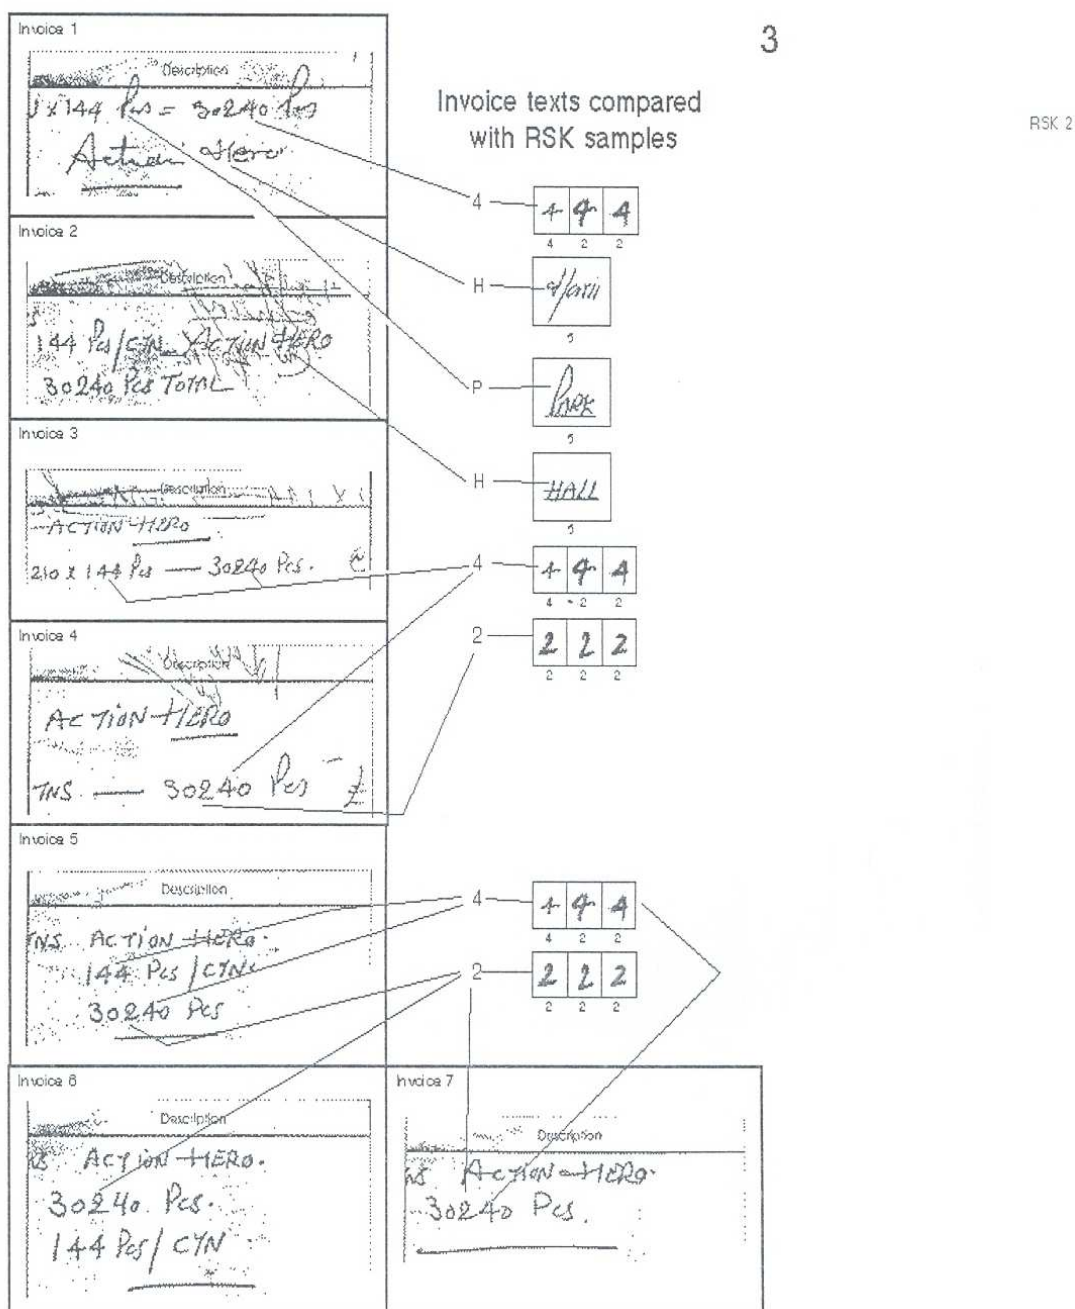 3
RSK 2
Invoice texts compared
with RSK samples
Invoice 1
Description
x 144 Pcs = 30240 Pcs
Action Hero
Invoice 2
Description
144 Pcs/CTN ACTION HERO
30240 Pcs TOTAL
Invoice 3
Description
ACTION-HERO
210 x 144 Pcs — 30240 Pcs.
Invoice 4
Description
ACTION-HERO
TNS — 30240 Pcs
Invoice 5
Description
TNS ACTION-HERO.
144 Pcs / CTNS
30240 Pcs
Invoice 6
Description
NS ACTION-HERO.
30240 Pcs.
144 Pcs / CTN
Invoice 7
Description
NS ACTION-HERO.
30240 Pcs.
4 4 4 4
4 2 2
H
5
P PARK
5
H HALL
5
4 4 4 4
4 2 2
2 2 2 2
2 2 2
4 4 4 4
4 2 2
2 2 2 2
2 2 2